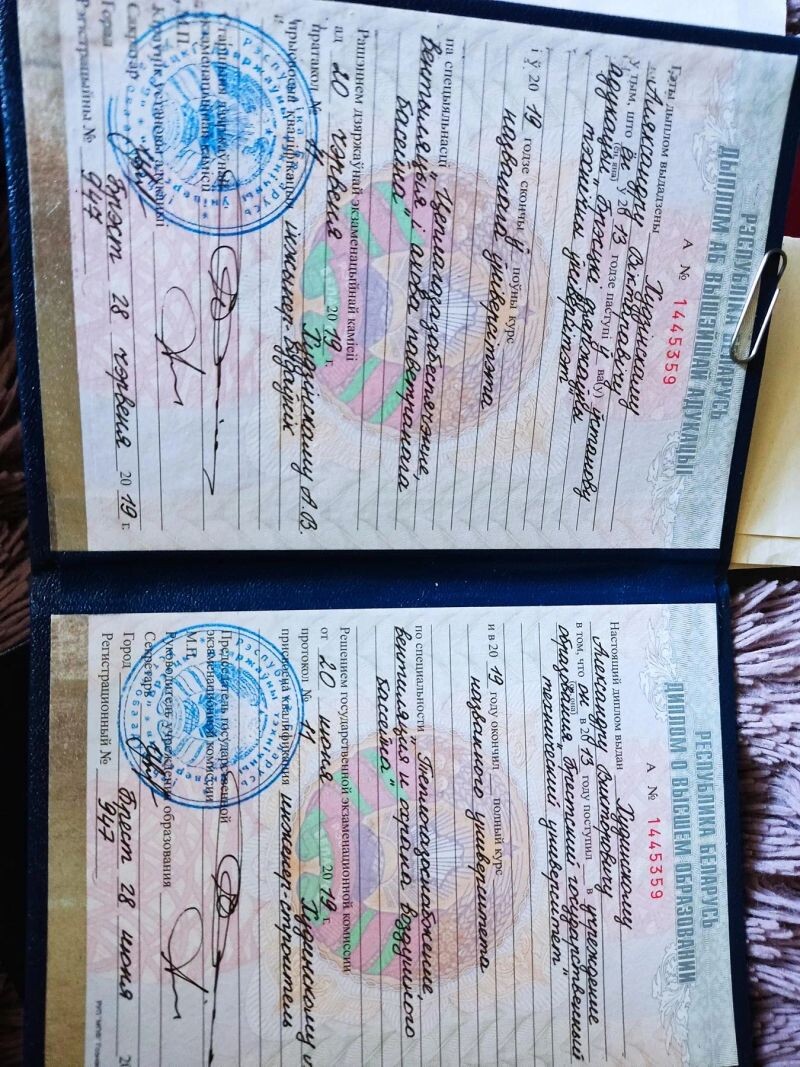 РЭСПУБЛІКА БЕЛАРУСЬ
ДЫПЛОМ АБ ВЫШЭЙШАЙ АДУКАЦЫІ
А № 1445359
Гэты дыплом выдадзены Худзінскаму
Аляксандру Віктаравічу
у тым, што ён у 2013 годзе паступіў ва(у) установу
адукацыі "Брэсцкі дзяржаўны
тэхнічны ўніверсітэт
і ў 2019 годзе скончыў поўны курс
названага універсітэта
па спецыяльнасці "Цеплагазазабеспячэнне,
вентыляцыя і ахова паветранага
басейна"
Рашэннем дзяржаўнай экзаменацыйнай камісіі
ад 20 чэрвеня 2019 г.
пратакол № 11 Худзінскаму А.В.
прысвоена кваліфікацыя інжынер-будаўнік
Старшыня дзяржаўнай
экзаменацыйнай камісіі
М.П.
Кіраўнік установы адукацыі
Сакратар
Горад Брэст 28 чэрвеня 2019 г.
Рэгістрацыйны № 947
РЕСПУБЛИКА БЕЛАРУСЬ
ДИПЛОМ О ВЫСШЕМ ОБРАЗОВАНИИ
А № 1445359
Настоящий диплом выдан Худинскому
Александру Викторовичу
в том, что он в 2013 году поступил в учреждение
образования "Брестский государственный
технический университет"
и в 2019 году окончил полный курс
названного университета
по специальности "Теплогазоснабжение,
вентиляция и охрана воздушного
бассейна"
Решением государственной экзаменационной комиссии
от 20 июня 2019 г.
протокол № 11 Худинскому
присвоена квалификация инженер-строитель
Председатель государственной
экзаменационной комиссии
М.П.
Руководитель учреждения образования
Секретарь
Город Брест 28 июня
Регистрационный № 947